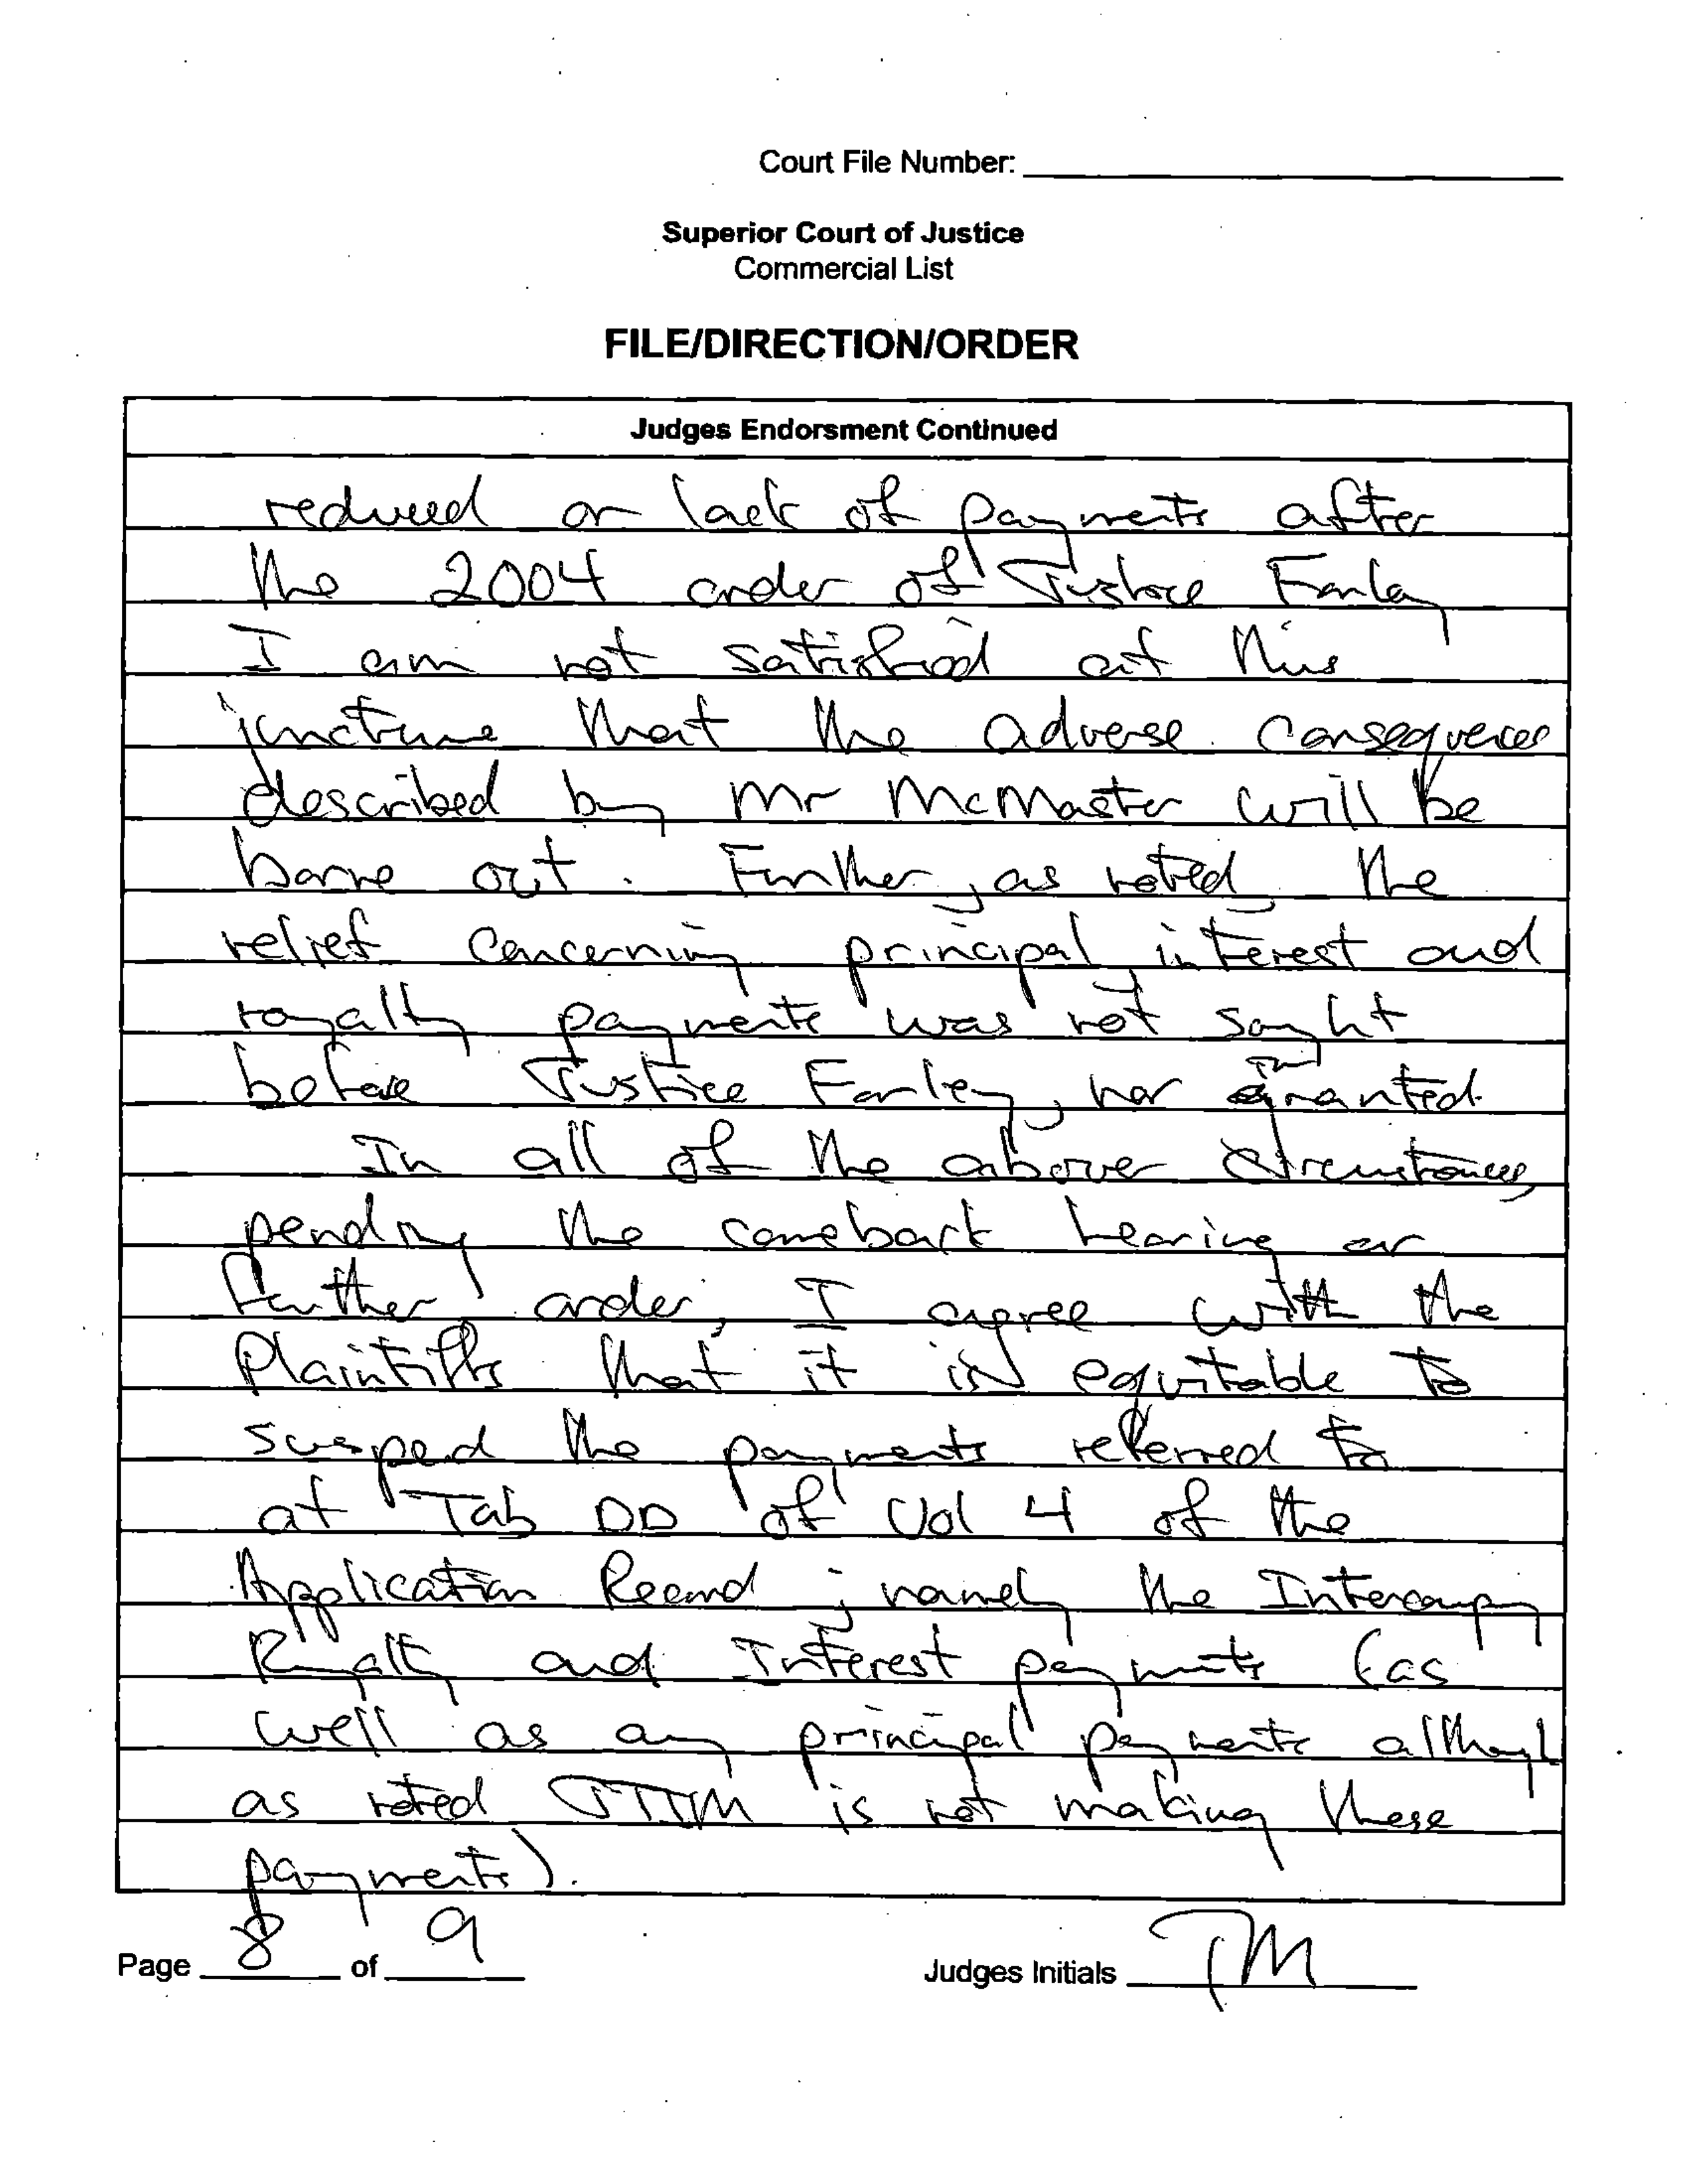 Court File Number:
Superior Court of Justice
Commercial List
FILE/DIRECTION/ORDER
Judges Endorsment Continued
reduced or lack of payments after
the 2004 order of Justice Farley
I am not satisfied at this
juncture that the adverse consequences
described by Mr McMaster will be
borne out. Further, as noted, the
relief concerning principal, interest and
royalty payments was not sought
before Justice Farley, nor granted.
In all of the above circumstances,
pending the comeback hearing or
further order, I agree with the
Plaintiffs that it is equitable to
suspend the payments referred to
at Tab DD of Vol 4 of the
Application Record; namely the Intercompany
Royalty and Interest payments (as
well as any principal payments although
as noted JTIM is not making these
payments).
Page 8 of 9
Judges Initials TM